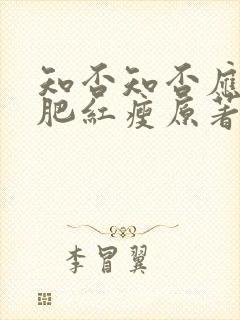 知否知否應
肥紅瘦原著
李冒翼